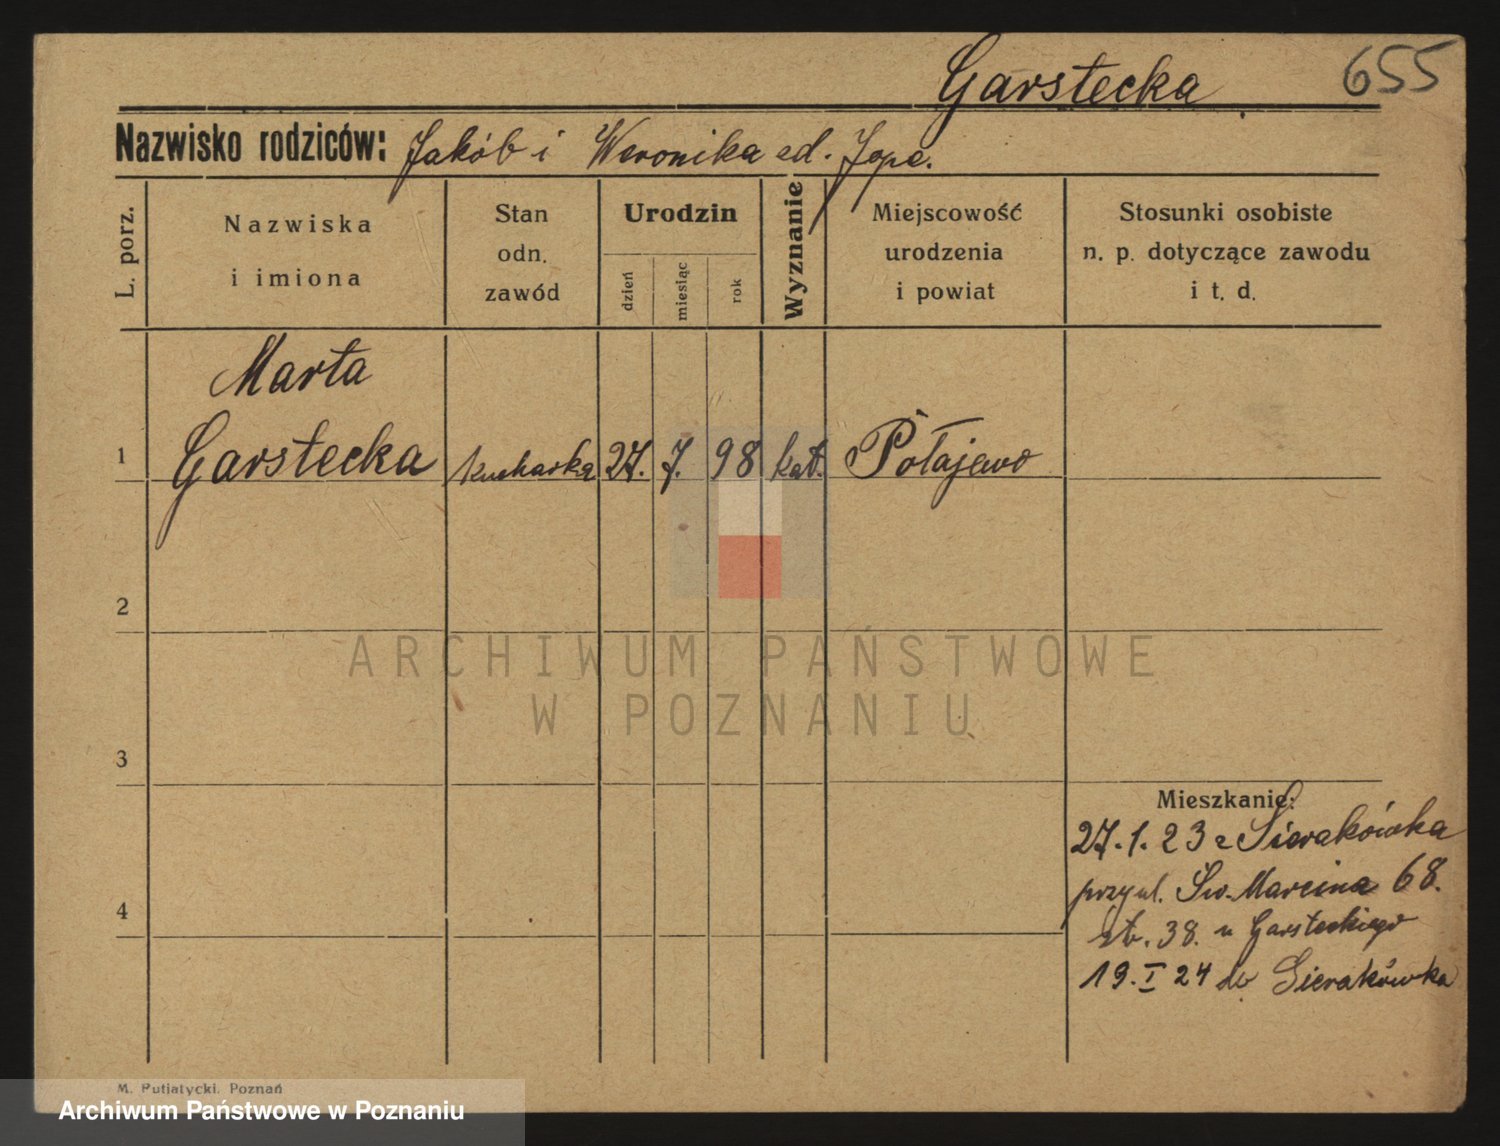 Garstecka 655
Nazwisko rodziców: Jakób i Weronika
L. porz.
Nazwiska
i imiona
Stan
odn.
zawód
Urodzin
dzień
miesiąc
rok
Wyznanie
Miejscowość
urodzenia
i powiat
Stosunki osobiste
n. p. dotyczące zawodu
i t. d.
Marta
1 Garstecka kucharka 27. 7. 98 kat. Połajewo
2
ARCHIWUM PAŃSTWOWE
W POZNANIU
3
Mieszkanie:
27.1.23 z Sierakówka
przy ul. Św. Marcina 68.
4
38. u Garsteckiego
19. I 24 do Sierakówka
M. Putiatycki. Poznań
Archiwum Państwowe w Poznaniu